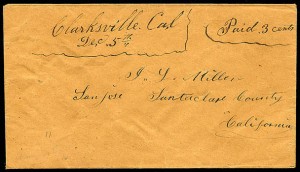 Clarksville. Cal
Paid. 3 cents
Dec. 5th
J. L. Miller
San jose Santa clara County
California